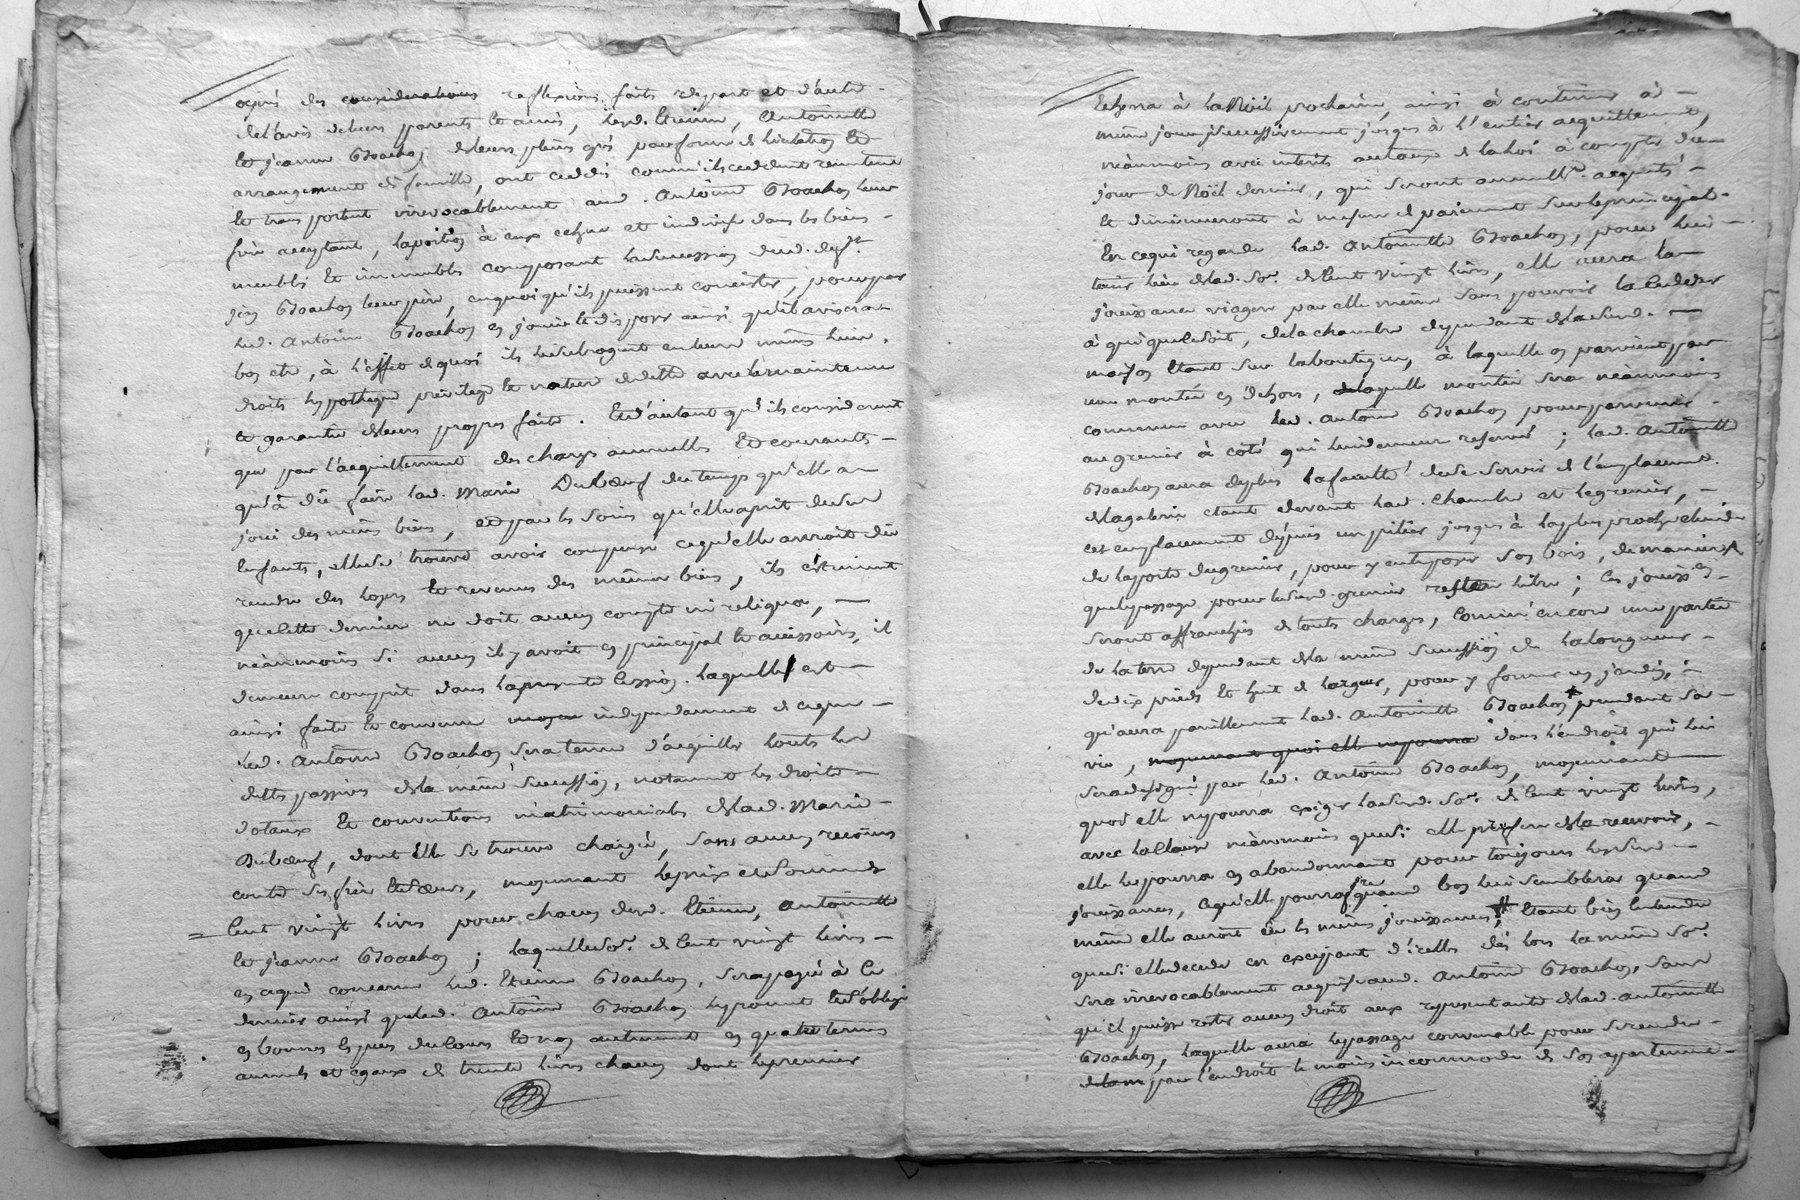 après des considerations reflexions faits respart et d'autre
de l'avis de leurs parents et amis, lesd. Etienne, Antoinette
et jeanne Boachon, de leurs pleins grés par forme de licitation et
arrangement de famille, ont cedés comm'ils cedent remettent
et transportent irrevocablement aud. Antoine Boachon leur
frère acceptant, la portion à eux echue et indivise dans les biens
meubles et immeubles composant la succession dud. deft.
jean Boachon leur père, en quoi qu'ils puissent consister, pour par
led. Antoine Boachon en jouir et disposer ainsi qu'il avisera
bon etre, à l'effet de quoi ils le subrogent en leurs mêmes lieu,
droits hypotheque privilege et nature de dette avec la maintenue
et garantie de leurs propres faits. Et d'autant qu'ils considerent
que par l'acquittement des charges annuelles et courantes
qu'à dû faire lad. Marie Duboeuf du temps qu'elle a
joui des mêmes biens, et par les soins qu'elle a prit de ses
enfants, elle se trouve avoir compensé ce qu'elle auroit dû
rendre des loyers et revenus des mêmes biens, ils estiment
que cette derniere ne doit aucun compte ni reliqua,
néanmoins si aucun il y avoit en principal et accessoires, il
demeure compris dans la presente cession. Laquelle est
ainsi faite et convenue moyen independament de ce que
led. Antoine Boachon sera tenu d'acquitter toutes les
dettes passives de la même succession, notament les droits
dotaux et conventions matrimoniales de lad. Marie
Duboeuf, dont elle se trouve chargée, sans aucun recours
contre ses frère et soeurs, moyennant le prix et somme de
cent vingt livres pour chacun desd. Etienne, Antoinette
et jeanne Boachon; laquelle so.e de cent vingt livres
en ce qui concerne led. Etienne Boachon, sera payée à ce
dernier ainsi que led. Antoine Boachon le promet et s'oblige
en bonnes especes de cours et non autrement en quatre termes
annuels et egaux de trente livres chacun dont le premier
echerra à la Noël prochaine, ainsi à continuer à
même jour successivement jusqu'à l'entier acquittement,
néanmoins avec interêts au taux de la loi à compter du
jour de Noël dernier, qui seront annuellt. acquités
et diminueront à mesure de paiement sur le principal.
En ce qui regarde lad. Antoinette Boachon, pour lui
tenir lieu de lad. so.e de cent vingt livres, elle aura la
jouissance viagere par elle même sans pouvoir la ceder
à qui que ce soit, de la chambre dependant de la susd.
maison etant sur la boutique, à laquelle on parvient par
une montée en dehors, de laquelle montée sera néanmoins
commun avec led. Antoine Boachon pour parvenir
au grenier à côté qui lui demeure reservé; lad. Antoinette
Boachon aura de plus la faculté de se servir de l'emplacement
de la galerie etant devant lad. chambre et le grenier,
cet emplacement depuis un pilier jusques à la plus proche
de la porte du grenier, pour y entreposer son bois, de maniere
que le passage pour le susd. grenier reste libre; ces jouiss.ces
seront affranchies de touts charges, comm'encore une partie
de la terre dependant de la même succession de la longueur
de dix pieds et huit de largeur, pour y former un jardin,
qu'aura pareillement lad. Antoinette Boachon pendant sa
vie, moyennant quoi elle ne pourra dans l'endroit qui lui
sera designé par led. Antoine Boachon, moyennant
quoi elle ne pourra exiger la susd. so.e de cent vingt livres,
avec la clause néanmoins que si elle prefere de la recevoir,
elle le pourra en abandonnant pour toujours les susd.
jouissances, ce qu'elle pourra fre quand bon lui semblera quand
même elle auroit eu les mêmes jouissances; Etant bien entendu
que si elle decede en exerçant d'icelles dès lors la même so.e
sera irrevocablement acquise aud. Antoine Boachon, sans
qu'il puisse rester aucun droit aux representants de lad. Antoinette
Boachon, laquelle aura le passage convenable pour se rendre
par l'endroit le moins incommode de son appartement